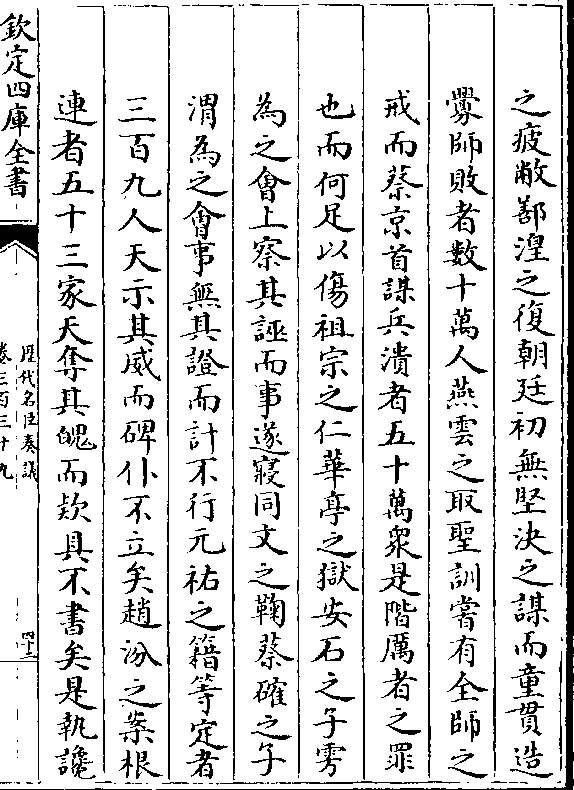 之疲敝鄯湟之復朝廷初無堅決之謀而童貫造
釁師敗者數十萬人燕雲之取聖訓嘗有全師之
戒而蔡京首謀兵潰者五十萬衆是階厲者之罪
也而何足以傷祖宗之仁華亭之獄安石之子雱
為之會上察其誣而事遂寢同文之鞠蔡確之子
渭為之會事無其證而計不行元祐之籍等定者
三百九人天示其威而碑仆不立矣趙汾之案根
連者五十三家天奪其魄而欵具不書矣是執讒
欽定四庫全書
歷代名臣奏議
卷三百三十九
四十三